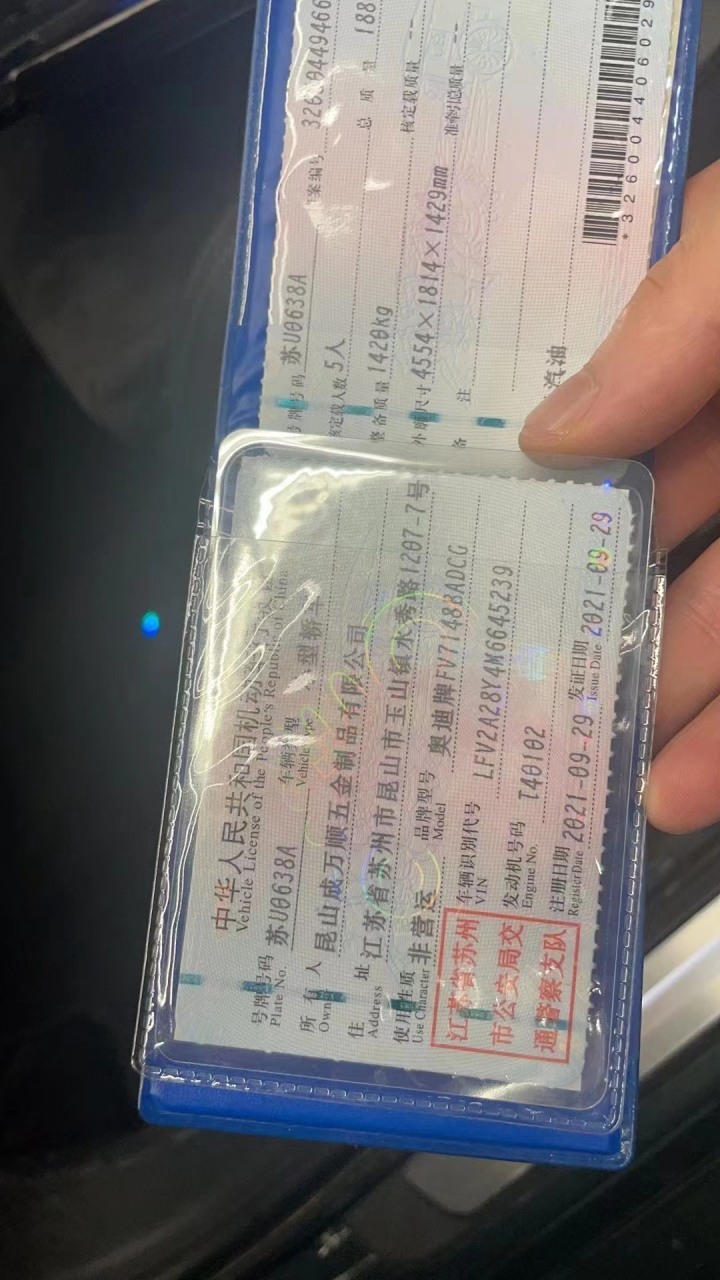 中华人民共和国机动
Vehicle License of the People's Republic of China
号牌号码 苏U0638A 车辆类型 型轿车
Plate No. Vehicle Type
所有人 昆山成万顺五金制品有限公司
Owner
住址 江苏省苏州市昆山市玉山镇水秀路1207-7号
Address
使用性质 非营运 品牌型号 奥迪牌FV7148BADCG
Use Character Model
江苏省苏州
市公安局交
通警察支队
车辆识别代号 LFV2A28Y4M6645239
VIN
发动机号码 T40102
Engine No.
注册日期 2021-09-29 发证日期 2021-09-29
Register Date Issue Date
号牌号码 苏U0638A 案编号
核定载人数 5人 总质量
整备质量 1420kg 核定载质量 --
外廓尺寸 4554×1814×1429mm 准牵引总质量
备注
汽油